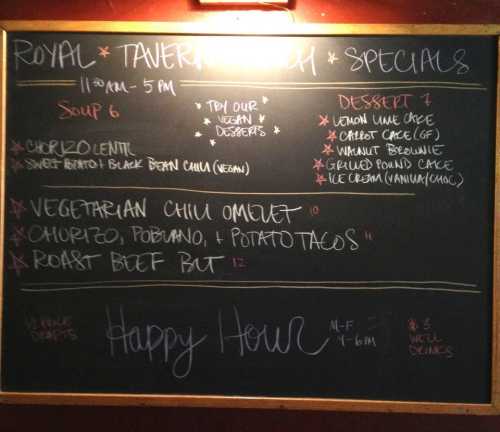 ROYAL * TAVERN * SPECIALS
11:30 AM - 5 PM
SOUP 6
* CHORIZO LENTIL
* SWEET POTATO + BLACK BEAN CHILI (VEGAN)
* TRY OUR *
* VEGAN *
DESSERTS *
DESSERT 7
* LEMON LIME CAKE
* CARROT CAKE (GF)
* WALNUT BROWNIE
* GRILLED POUND CAKE
* ICE CREAM (VANILLA/CHOC)
* VEGETARIAN CHILI OMELET 10
* CHORIZO, POBLANO, + POTATO TACOS 11
* ROAST BEEF BLT 12
DRAFTS
Happy Hour
M-F
4-6PM
$3
WELL
DRINKS